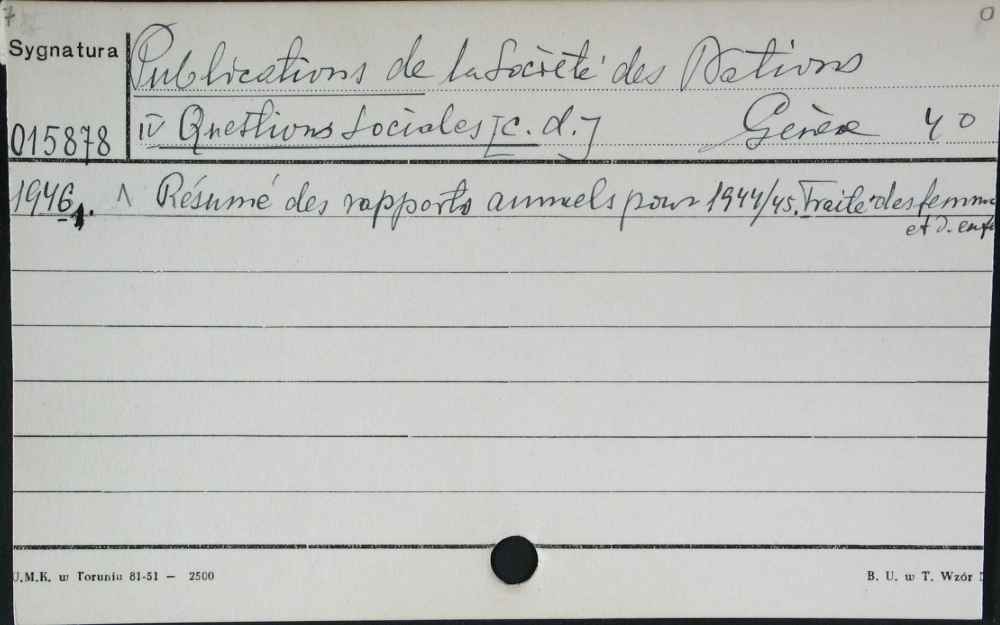 7 0
Sygnatura
Publications de la Société des Nations
015878
IV Questions Sociales [c. d.] Genève 4 0
1946 1. 1 Résumé des rapports annuels pour 1944/45. Traite des femm
et d. enf
U.M.K. w Toruniu 81-51 — 2500
B. U. w T. Wzór